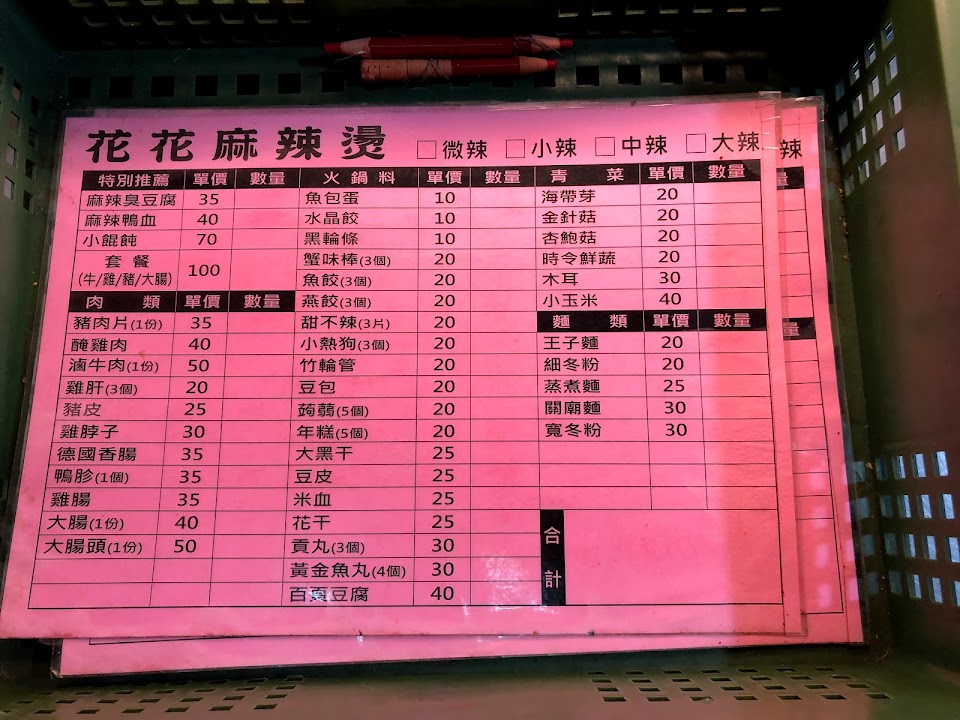 花花麻辣燙 □微辣 □小辣 □中辣 □大辣
特別推薦 單價 數量
麻辣臭豆腐 35
麻辣鴨血 40
小餛飩 70
套餐
(牛/雞/豬/大腸) 100
肉類 單價 數量
豬肉片(1份) 35
醃雞肉 40
滷牛肉(1份) 50
雞肝(3個) 20
豬皮 25
雞脖子 30
德國香腸 35
鴨胗(1個) 35
雞腸 35
大腸(1份) 40
大腸頭(1份) 50
火鍋料 單價 數量
魚包蛋 10
水晶餃 10
黑輪條 10
蟹味棒(3個) 20
魚餃(3個) 20
燕餃(3個) 20
甜不辣(3片) 20
小熱狗(3個) 20
竹輪管 20
豆包 20
蒟蒻(5個) 20
年糕(5個) 20
大黑干 25
豆皮 25
米血 25
花干 25
貢丸(3個) 30
黃金魚丸(4個) 30
百頁豆腐 40
青菜 單價 數量
海帶芽 20
金針菇 20
杏鮑菇 20
時令鮮蔬 20
木耳 30
小玉米 40
麵類 單價 數量
王子麵 20
細冬粉 20
蒸煮麵 25
關廟麵 30
寬冬粉 30
合計
辣
量
量